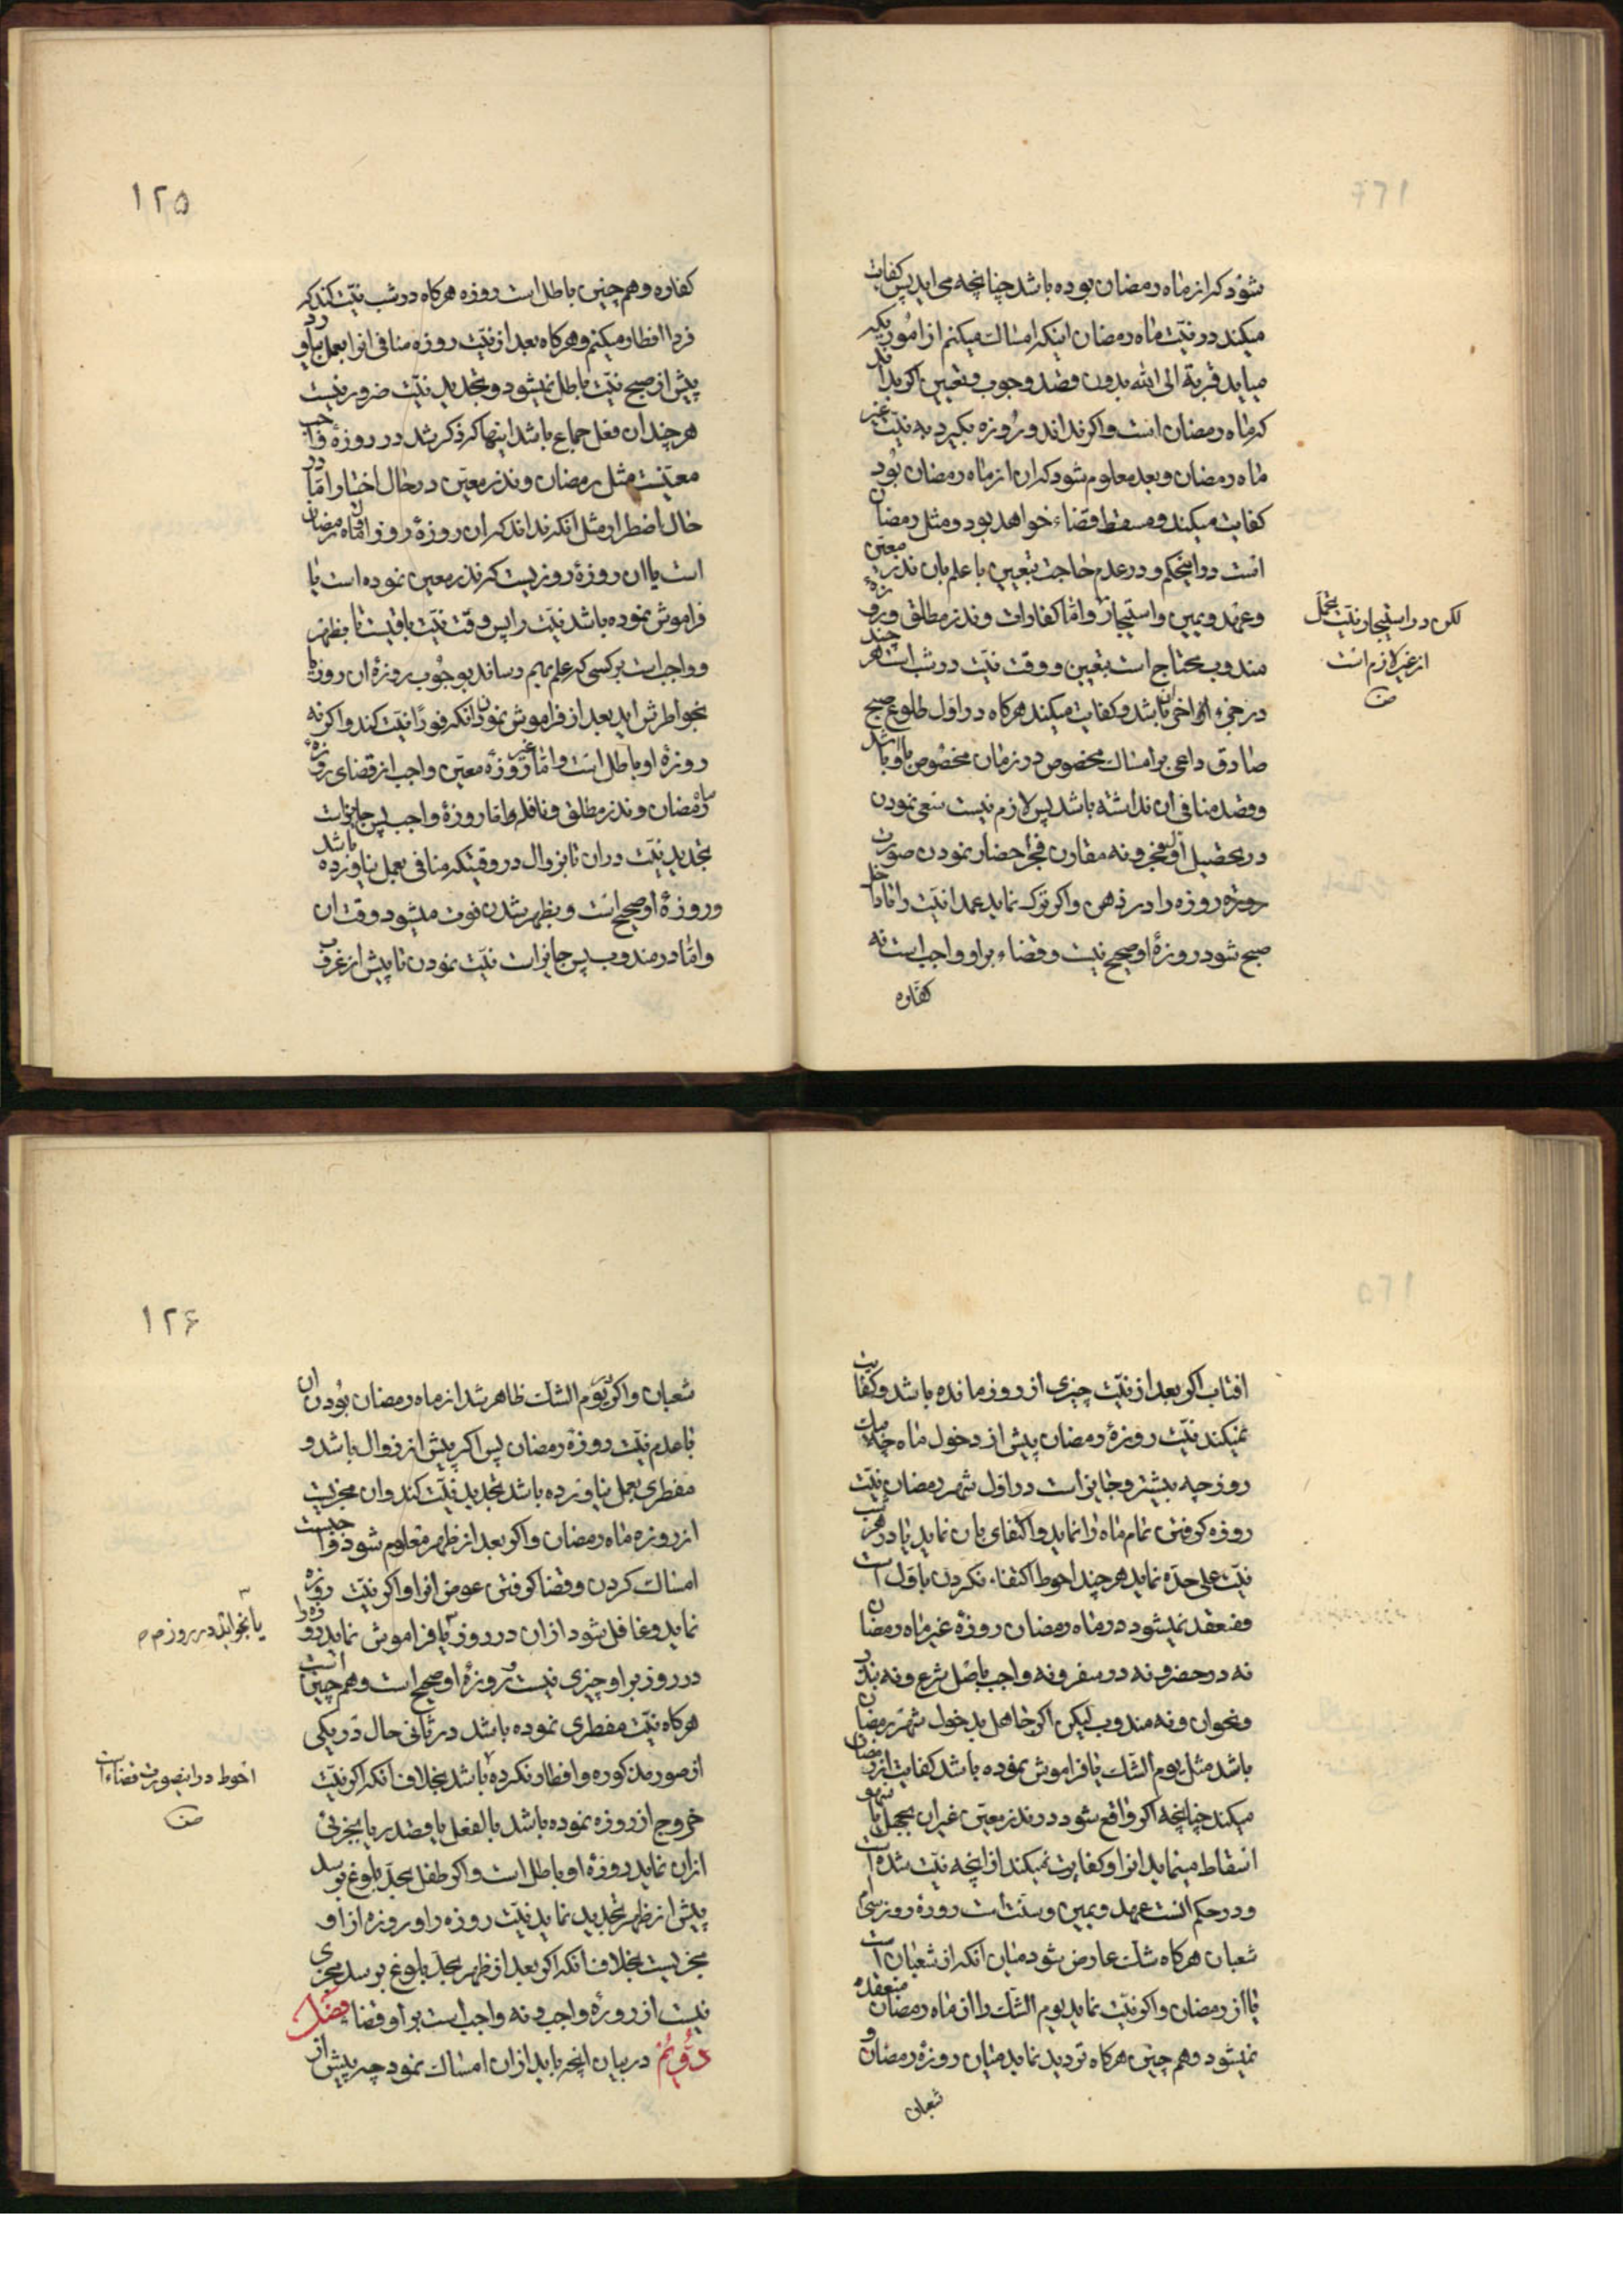 شود که از ماه رمضان بوده باشد چنانچه می اید پس کفایت
میکند در نیت ماه رمضان اینکه امساک میکنم از اموریکه
میباید قربة الی الله بدون قصد وجوب و تعیین اکر بداند
که ماه رمضان است و اکر نداند و روزه بکیرد به نیت غیر
ماه رمضان و بعد معلوم شود که ان از ماه رمضان بود
کفایت میکند و مسقط قضاء خواهد بود و مثل رمضان
است در اینحکم و در عدم حاجت بتعیین با علم بان نذر معین
و عهد و یمین و استیجار و اما کفارات و نذر مطلق و روزهٔ
مندوب محتاج است بتعیین و وقت نیت در شب است هر چند
در جزء اخر ان باشد و کفایت میکند هرکاه در اول طلوع صبح
صادق داعی بر امساک مخصوص در زمان مخصوص با او باشد
و قصد منافی ان نداشته باشد پس لازم نیست سعی نمودن
در تحصیل اول فجر و نه مقارن فجر احضار نمودن صورت
روزه را در ذهن و اکر ترک نماید عمدا نیت را تا داخل
صبح شود روزهٔ او صحیح نیست و قضاء بر او واجب است نه
کفاره
لکن در استیجار نیت تحمل
از غیر لازم است
۱۲۵
کفاره و هم چنین باطل است روزه هرکاه در شب نیت کند که
فردا افطار میکنم و هرکاه بعد از نیت روزه منافی انرا بعمل اورد
پیش از صبح نیت باطل نمیشود و تجدید نیت ضرور نیست
هر چند ان فعل جماع باشد اینها که ذکر شد در روزهٔ واجب
معینست مثل رمضان و نذر معین در حال اختیار اما در
حال اضطرار مثل انکه نداند که ان روزهٔ روز اول ماه رمضان
است یا ان روزهٔ روزیست که نذر معین نموده است یا
فراموش نموده باشد نیت را پس وقت نیت باقیست تا بظهر
و واجب است بر کسی که علم بهم رساند بوجوب روزهٔ ان روز یا
بخواطرش اید بعد از فراموش نمودن انکه فورا نیت کند و اکر نه
روزهٔ او باطل است و اما غیر روزهٔ معین واجب از قضای روزهٔ
رمضان و نذر مطلق و نافله و اما روزهٔ واجب پس جایز است
تجدید نیت در ان تا بزوال در وقتیکه منافی بعمل نیاورده باشد
و روزهٔ او صحیح است و بظهر شدن فوت میشود وقت ان
و اما در مندوب پس جایز است نیت نمودن تا پیش از غروب
افتاب اکر بعد از نیت چیزی از روز مانده باشد و کفایت
نمیکند نیت روزهٔ رمضان پیش از دخول ماه چه یک
روز چه بیشتر و جایز است در اول شهر رمضان نیت
روزه کرفتن تمام ماه را نماید و اکتفای بان نماید یا در هر شب
نیت علی حده نماید هر چند احوط اکتفاء نکردن باول است
و منعقد نمیشود در ماه رمضان روزهٔ غیر ماه رمضان
نه در حضر و نه در سفر و نه واجب باصل شرع و نه بنذر
و نحو ان و نه مندوب لیکن اکر جاهل بدخول شهر رمضان
باشد مثل یوم الشک یا فراموش نموده باشد کفایت از رمضان
میکند چنانچه اکر واقع شود در نذر معین غیر ان بجهل یا سهو
اسقاط مینماید انرا و کفایت نمیکند از انچه نیت شده است
و در حکم انست عهد و یمین و سنت است روزهٔ روز سی ام
شعبان هرکاه شک عارض شود میان انکه از شعبان است
یا از رمضان و اکر نیت نماید یوم الشک را از ماه رمضان منعقد
نمیشود و هم چنین هرکاه تردید نماید میان روزهٔ رمضان و
شعبان
۱۲۶
شعبان و اکر یوم الشک ظاهر شد از ماه رمضان بودن ان
با عدم نیت روزهٔ رمضان پس اکر پیش از زوال باشد و
مفطری بعمل نیاورده باشد تجدید نیت کند و ان مجزیست
از روزه ماه رمضان و اکر بعد از ظهر معلوم شود واجبست
امساک کردن و قضا کرفتن عوض انرا و اکر نیت روزه
نماید و غافل شود از ان در روز یا فراموش نماید روزه را
در روز بر او چیزی نیست و روزهٔ او صحیح است و هم چنین است
هرکاه نیت مفطری نموده باشد در ثانی حال در یکی
از صور مذکوره و افطار نکرده باشد بخلاف انکه اکر نیت
خروج از روزه نموده باشد بالفعل یا قصد ریا بجزئی
از ان نماید روزهٔ او باطل است و اکر طفل بحد بلوغ برسد
پیش از ظهر تجدید نماید نیت روزه را و روزه از او
مجزیست بخلاف انکه اکر بعد از ظهر بحد بلوغ برسد مجزی
نیست از روزهٔ واجب و نه واجب است بر او قضا فصل
دویم در بیان انچه باید از ان امساک نمود چه پیش از
یا بخوابد در روز م
احوط در اینصورت قضاء است